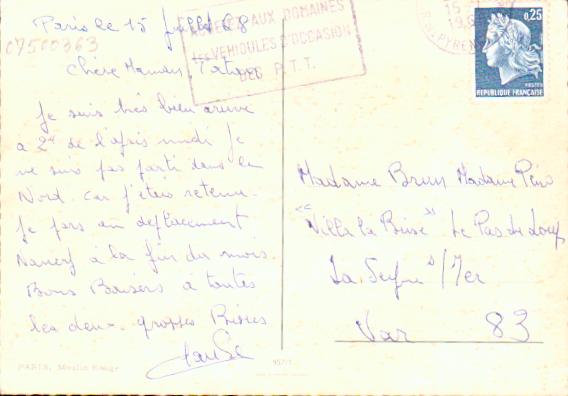 Paris le 15 juillet 68
07500363
Chère Maman, Tatie
Je suis très bien arrivé
à 2h de l'après midi je
ne suis pas parti dans le
Nord. car j'étais retenu.
Je pars en déplacement
Nancy à la fin du mois.
Bons Baisers à toutes
les deux. grosses Bises
ACHETEZ AUX DOMAINES
LES VEHICULES D'OCCASION
DES P.T.T.
15
19
R. DES PYRENEES
0,25
POSTES
REPUBLIQUE FRANÇAISE
Madame Brun Madame
"Villa la Brise" Le Pas du Loup
La Seyne s/Mer
Var 83
PARIS, Moulin Rouge